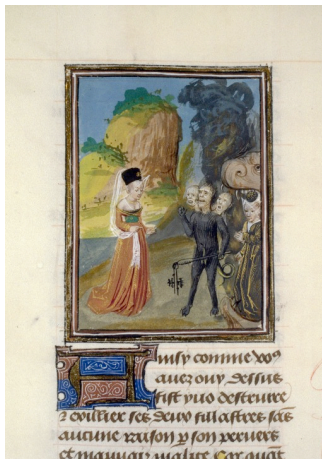 Ainsy comme vo9
auez ouy dessus
fist yno destruire
2 exillier ses deux fillastres sãs
aucune raison p son peruers
et mauuaiz malice Car quãt